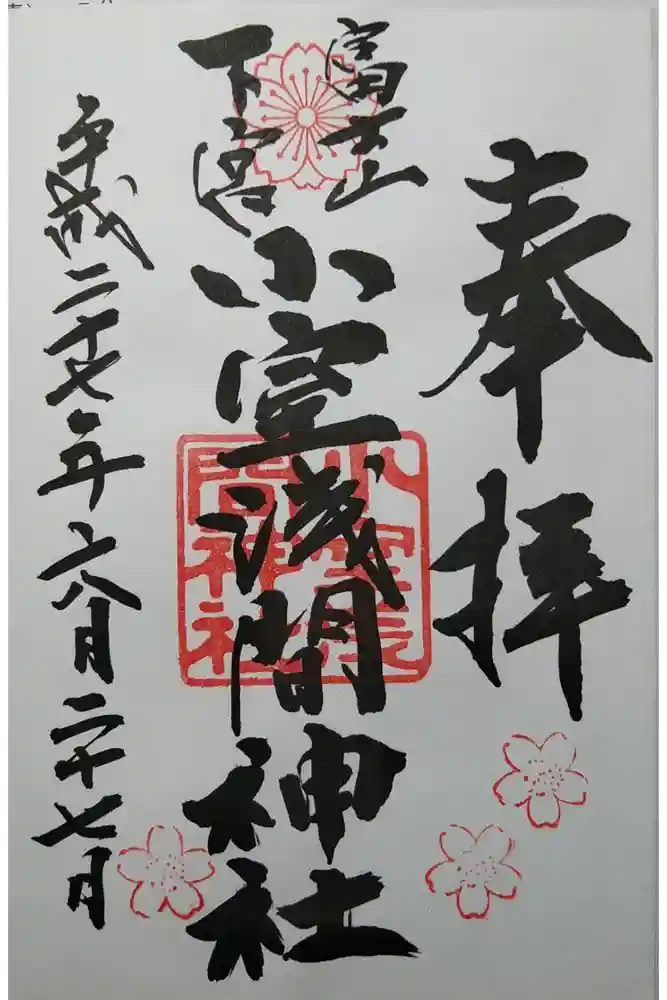 奉拝
富士山
下宮
小室浅間神社
平成二十七年六月二十七月
小室浅
間神社